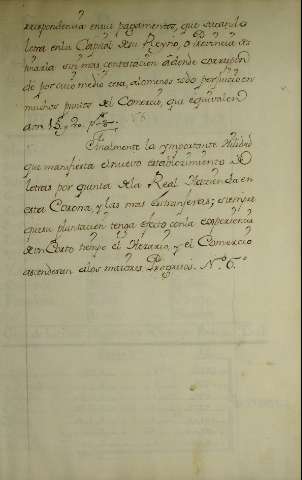 respondencia en sus pagamentos, que sacando
letra en la Capital de su Reyno, o
sin mas contratacion adonde
de por cuio medio cesa, al menos todo perjuicio en
muchos puntos del Comercio, que equivalen
a un 15 y 20. p%
Finalmente la ymportante Utilidad
que manifiesta el nuevo establecimiento de
letras por quenta de la Real Hacienda en
esta Corona, y las mas Extrangeras; siempre
que su plantacion tenga efecto con la experiencia
de un Corto tiempo el Herario, y el Comercio
ascenderan a los maiores Progresos. N.º 6.º